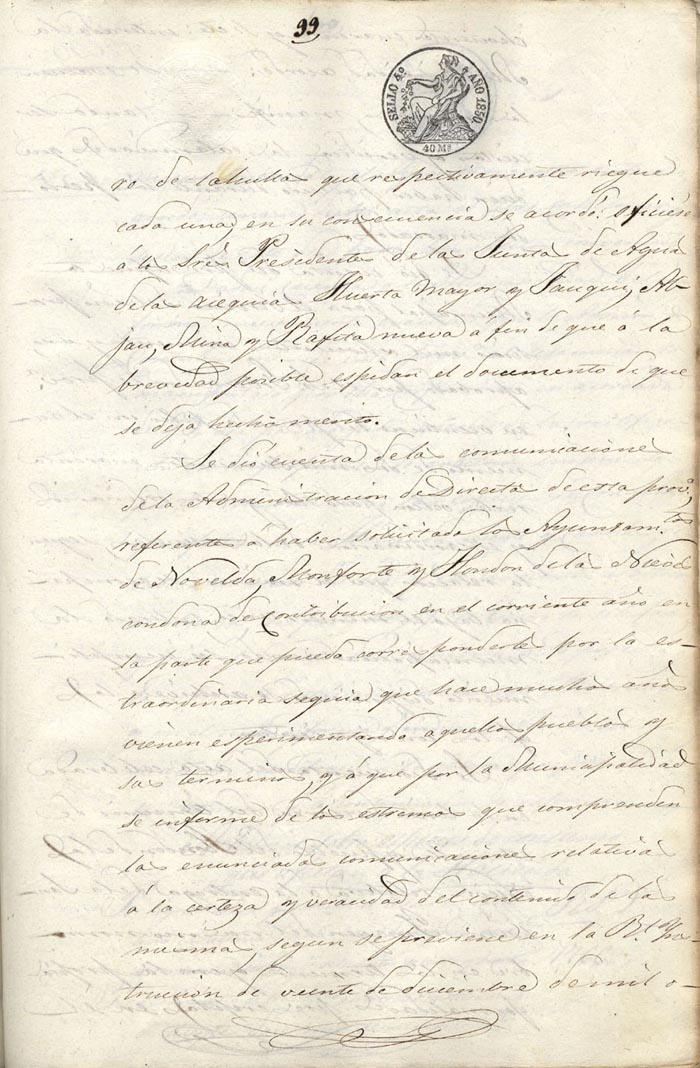 99
SELLO 4º AÑO 1850.
40 Ms
ro de tahulla que respectivamente riegue
cada una, en su consecuencia se acordó: oficien
á los Sres Presidentes de la Junta de Aguas
de la acequia Huerta Mayor y Fauqui, Ab-
jau, Mina y Rafica nueva á fin de que á la
brevedad posible espidan el documento de que
se deja hecho merito.
Se dió cuenta de las comunicaciones
de la Administracion de Directas de esta provª,
referente á haber solicitado los Ayuntamtos
de Novelda, Monforte y Hondon de las Nieves
condona de contribucion en el corriente año en
la parte que pueda corresponderles por la es-
traordinaria sequia que hace muchos años
vienen esperimentando aquellos pueblos y
sus terminos, y á que por la Municipalidad
se informe de los estremos que comprenden
las enunciadas comunicaciones relativas
á la certeza y veracidad del contenido de las
mismas, segun se previene en la Rl Yns-
truccion de veinte de diciembre de mil o-